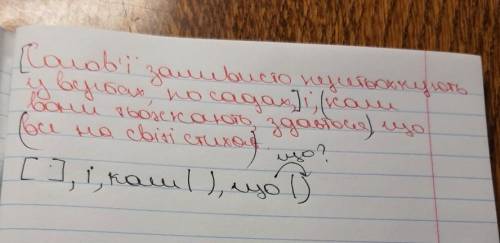 [Солов'ї заливисто перетьохкують
у вербах, по садах,] і, (коли
вони тьохкають, здається), що
(все на світі стихає).
що?
[ ], і, коли ( ), що ( )